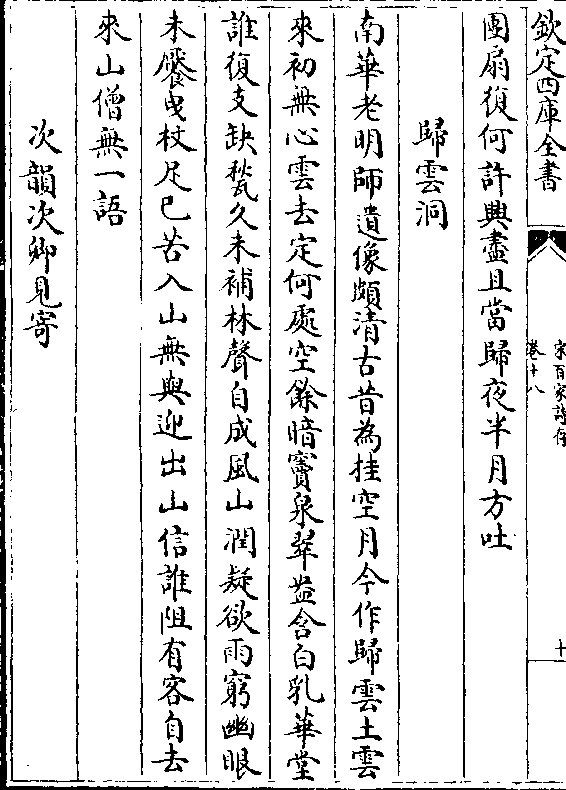 欽定四庫全書
宋百家詩存
卷十八
十
團扇復何許興盡且當歸夜半月方吐
歸雲洞
南華老明師遺像頗清古昔為挂空月今作歸雲土雲
來初無心雲去定何處空餘暗竇泉翠莖含白乳華堂
誰復支缺甃久未補林聲自成風山潤疑欲雨窮幽眼
未饜曵杖足已苦入山無與迎出山信誰阻有客自去
來山僧無一語
次韻次卿見寄